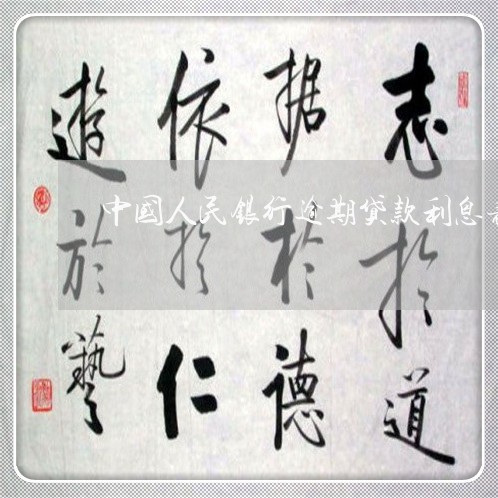 志於道
据於德
依於仁
遊於藝
中國人民銀行逾期貸款利息